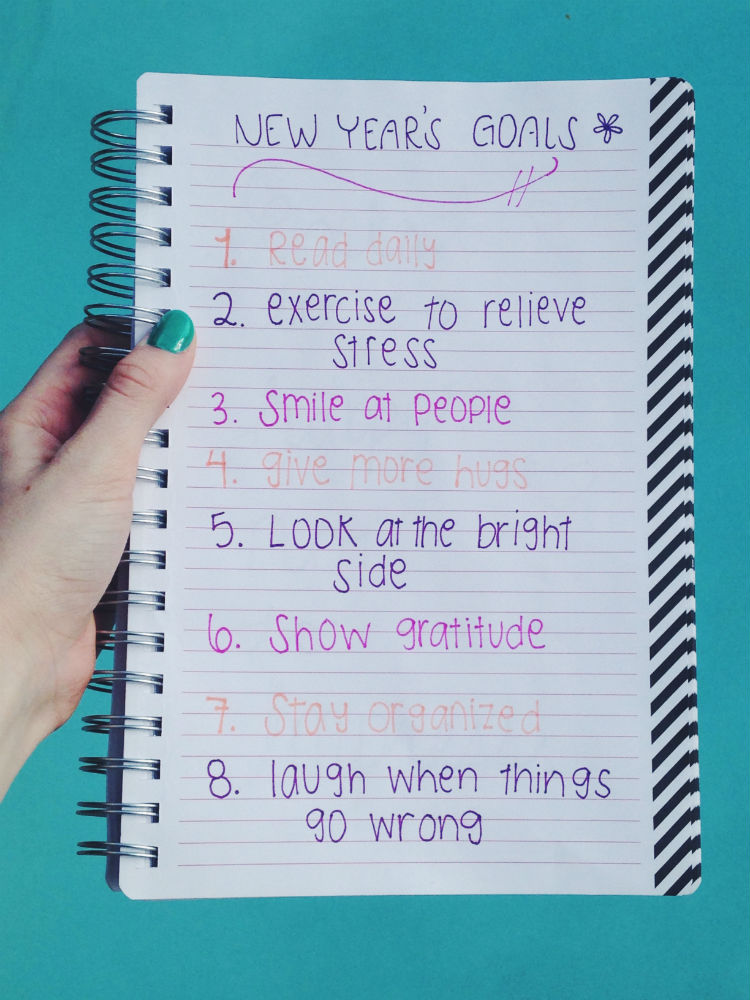 NEW YEAR'S GOALS
1. Read daily
2. exercise to relieve
stress
3. Smile at people
4. give more hugs
5. LOOK at the bright
side
6. Show gratitude
7. Stay organized
8. laugh when things
go wrong